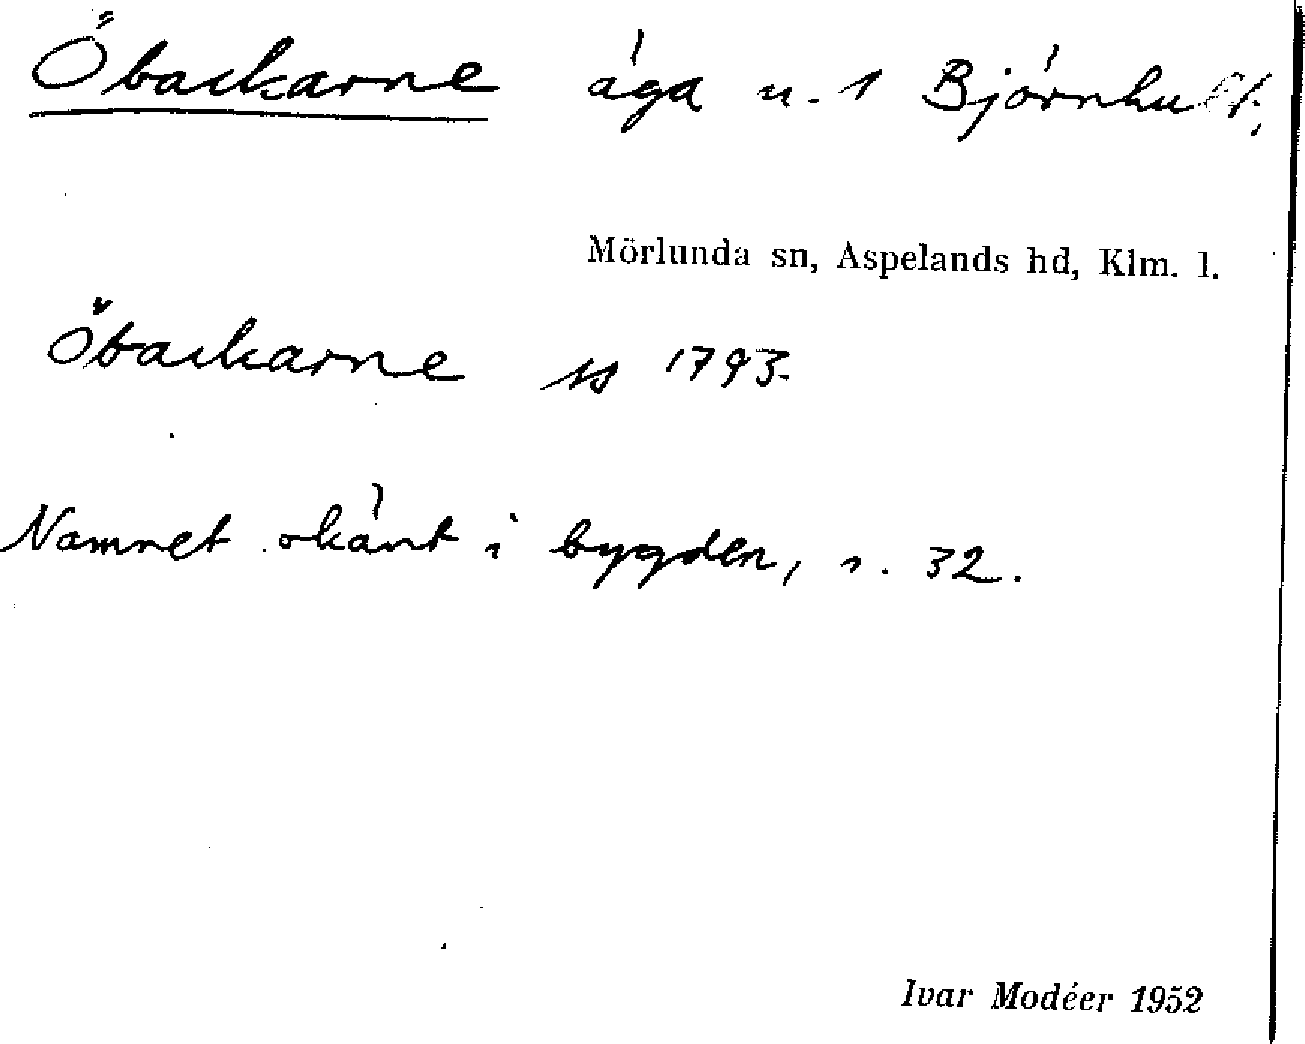 Öbackarne äga n. 1 Björnhult,
Mörlunda sn, Aspelands hd, Klm. l.
Öbackarne ss 1793.
Namnet okänt i bygden, s. 32.
Ivar Modéer 1952